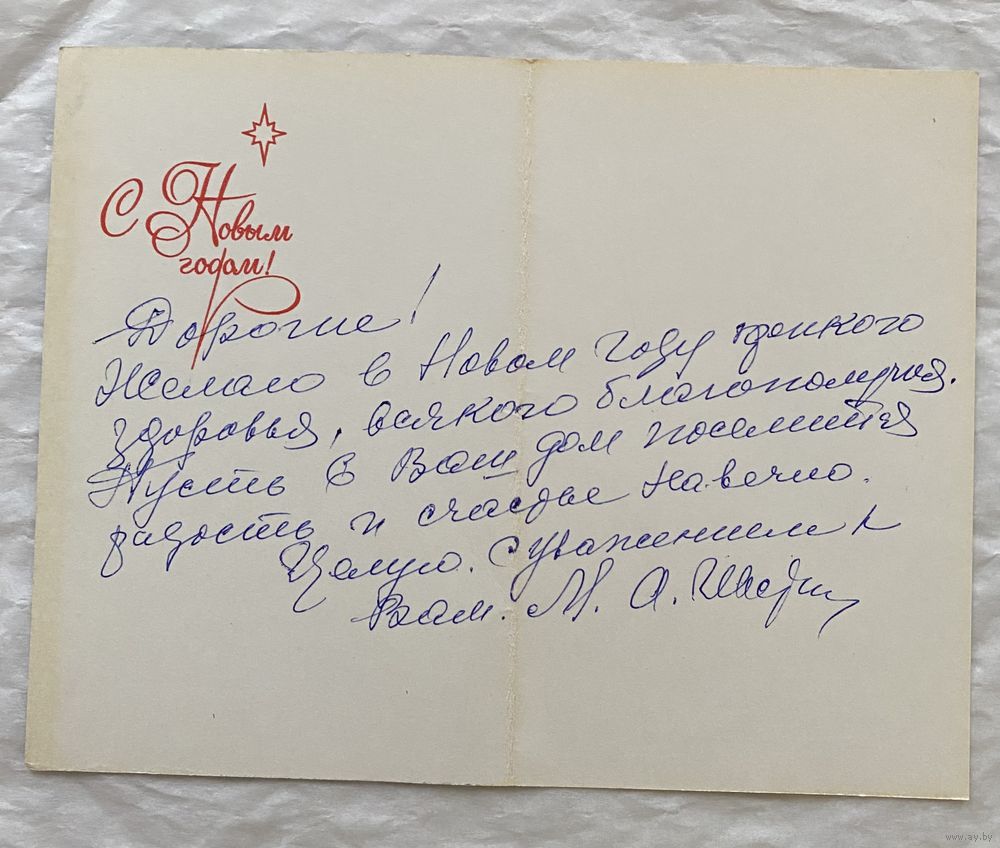 С Новым
годом!
Дорогие!
Желаю в Новом году крепкого
здоровья, всякого благополучия.
Пусть в Ваш дом поселится
радость и счастье навечно.
Целую. С уважением к
Вам. М. А.
www.ay.by